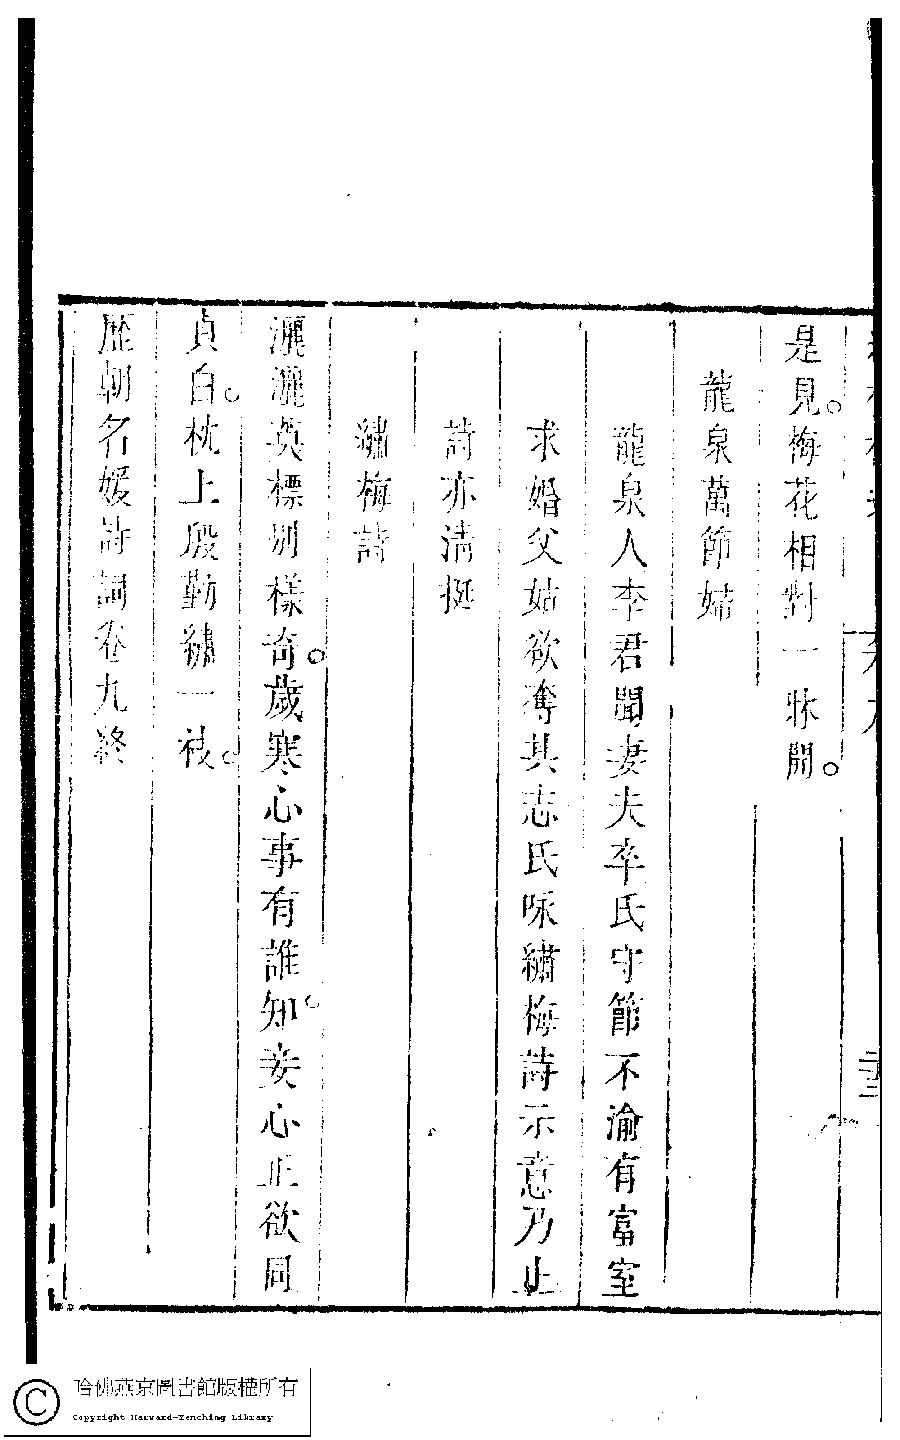 是見。梅花相對一牀開。
龍泉萬節婦
龍泉人李君聞妻夫卒氏守節不渝有富室
求婚父姑欲奪其志氏咏繡梅詩示意乃止
詩亦淸挺
繡梅詩
灑灑英標別樣奇。歲寒心事有誰知。妾心正欲同
貞白。枕上殷勤繡一枝。
歷朝名媛詩詞卷九終
哈佛燕京圖書館版權所有
Copyright Harvard-Yenching Library